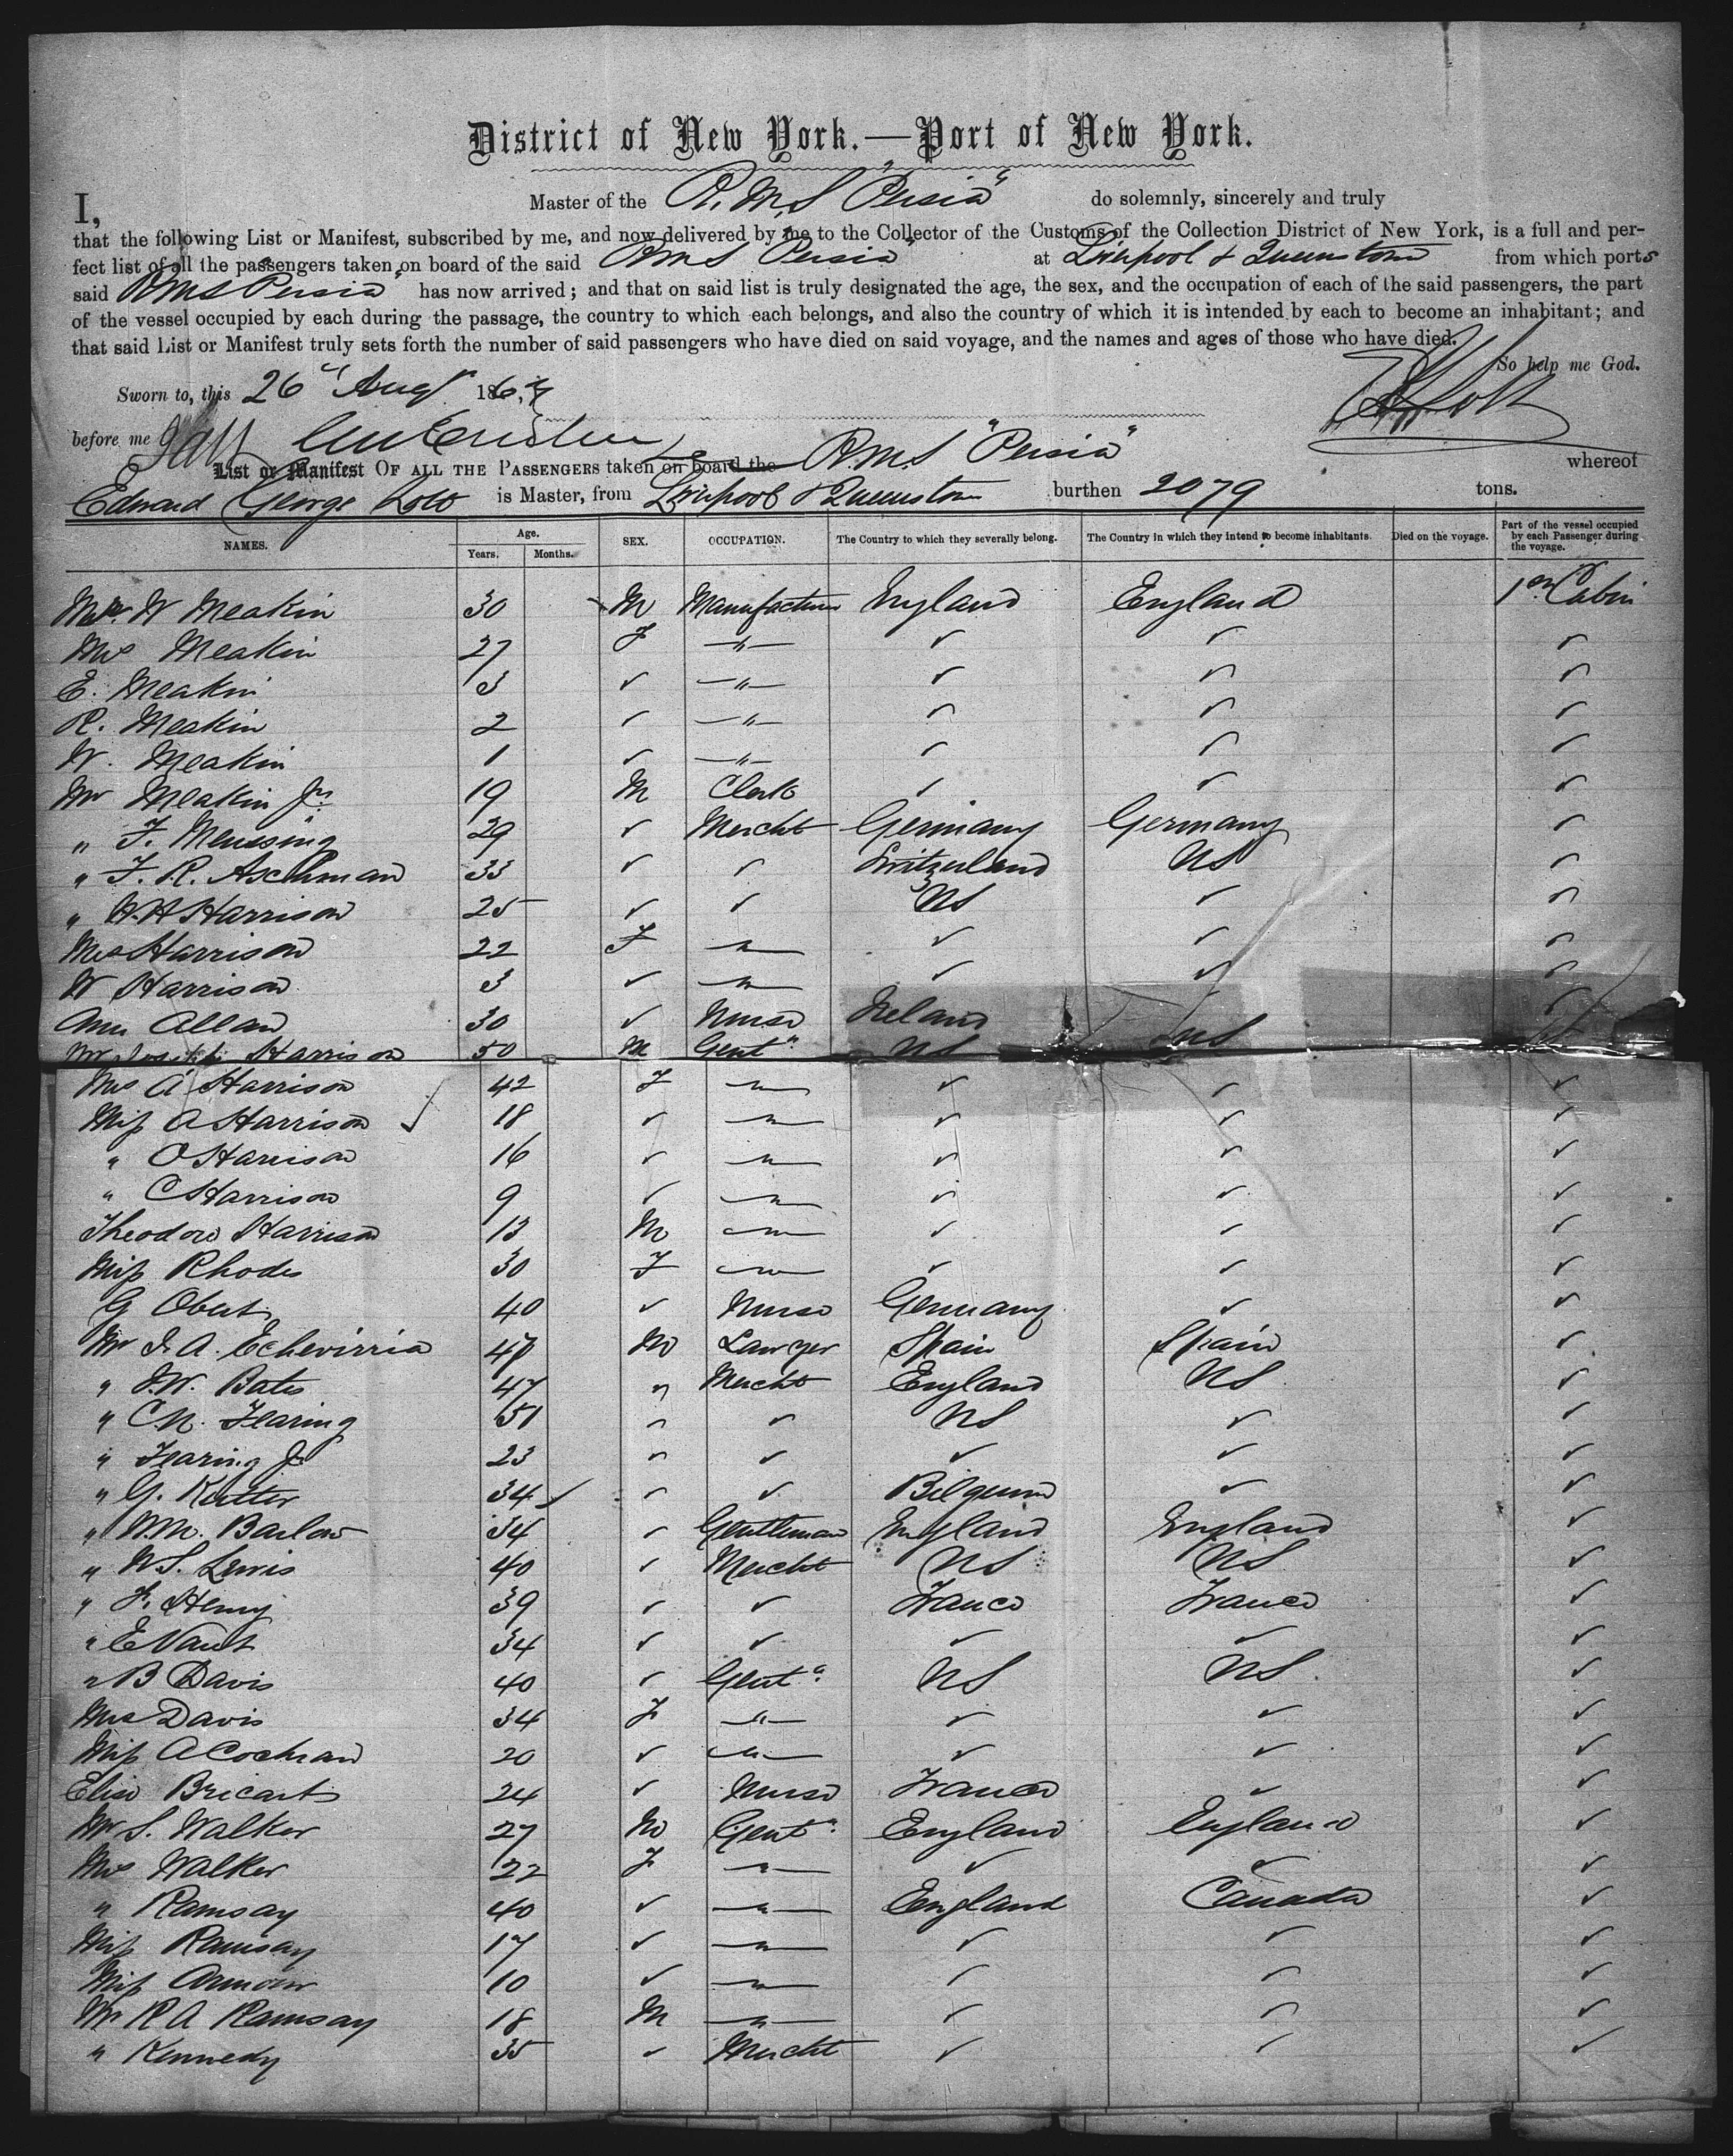 District of New York.—Port of New York.
I, Master of the R.M.S "Persia" do solemnly, sincerely and truly
that the following List or Manifest, subscribed by me, and now delivered by me to the Collector of the Customs of the Collection District of New York, is a full and per-
fect list of all the passengers taken on board of the said RMS "Persia" at Liverpool & Queenstown from which ports
said RMS "Persia" has now arrived; and that on said list is truly designated the age, the sex, and the occupation of each of the said passengers, the part
of the vessel occupied by each during the passage, the country to which each belongs, and also the country of which it is intended by each to become an inhabitant; and
that said List or Manifest truly sets forth the number of said passengers who have died on said voyage, and the names and ages of those who have died.
So help me God.
Sworn to, this 26" Augt 186
before me
List or Manifest OF ALL THE PASSENGERS taken on board the R.M.S "Persia" whereof
Edward George Lott is Master, from Liverpool & Queenstown burthen 2079 tons.
NAMES. Age. Years. Months. SEX. OCCUPATION. The Country to which they severally belong. The Country in which they intend to become inhabitants. Died on the voyage. Part of the vessel occupied by each Passenger during the voyage.
Mr. W Meakin 30 M Manufacturer England England 1st Cabin
Mrs Meakin 27 F —"— ✓ ✓ ✓
E. Meakin 3 ✓ —"— ✓ ✓ ✓
R. Meakin 2 ✓ —"— ✓ ✓ ✓
W. Meakin 1 ✓ —"— ✓ ✓ ✓
Mr Meakin Jr. 19 M Clerk ✓ ✓ ✓
" F. Meussing 29 ✓ Mercht Germany Germany ✓
" F. R. Aschman 33 ✓ ✓ Switzerland US ✓
" H.H Harrison 25 ✓ ✓ US ✓ ✓
Mrs Harrison 22 F —"— ✓ ✓ ✓
W Harrison 3 ✓ —"— ✓ ✓ ✓
Ann Allan 30 ✓ Nurse Ireland ✓
Mr Joseph Harrison 50 M Gent" US US
Mrs A Harrison 42 F —"— ✓ ✓ ✓
Miss A Harrison ✓ 18 ✓ —"— ✓ ✓ ✓
" O Harrison 16 ✓ —"— ✓ ✓ ✓
" C Harrison 9 ✓ —"— ✓ ✓ ✓
Theodore Harrison 13 M —"— ✓ ✓ ✓
Miss Rhodes 30 F —"— ✓ ✓ ✓
G Obert 40 ✓ Nurse Germany ✓ ✓
Mr I. A. Echevirria M Lawyer Spain Spain ✓
" J.W. Bates 47 " Mercht England US ✓
" C.N. Fearing 51 " ✓ US ✓ ✓
" Fearing Jr 23 " ✓ ✓ ✓ ✓
" G. Kutter 34 ✓ " ✓ Belgium ✓ ✓
" W.M. Barlow 34 ✓ Gentleman England England ✓
" W S. Lewis 40 ✓ Mercht US US ✓
" F. Henry 39 ✓ ✓ France France ✓
" E 34 ✓ ✓ ✓ ✓ ✓
" B Davis 40 ✓ Gent" US US ✓
Mrs Davis 34 F —"— ✓ ✓ ✓
Miss A Cochran 20 ✓ —"— ✓ ✓ ✓
Elise Bricart 24 ✓ Nurse France ✓ ✓
Mr S. Walker 27 M Gent" England England ✓
Mrs Walker 22 F —"— ✓ ✓ ✓
" Ramsay 40 ✓ —"— England Canada ✓
Miss Ramsay 17 ✓ —"— ✓ ✓ ✓
Miss Armour 10 ✓ —"— ✓ ✓ ✓
Mr R A Ramsay 18 M —"— ✓ ✓ ✓
" Kennedy 35 ✓ Mercht ✓ ✓ ✓